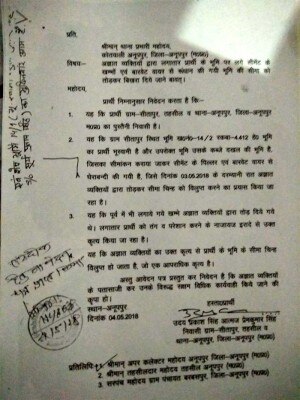 प्रति,
श्रीमान् थाना प्रभारी महोदय,
कोतवाली अनूपपुर, जिला-अनूपपुर (म०प्र०)
विषय:- अज्ञात व्यक्तियों द्वारा लगातार प्रार्थी के भूमि पर लगे सीमेंट के
खम्भों एवं बारवेट वायर से की गयी भूमि की सीमा को
तोड़कर बिखरा दिये जाने बावत्।
महोदय,
प्रार्थी निम्नानुसार निवेदन करता है कि:-
1. यह कि प्रार्थी ग्राम-सीतापुर, तहसील व थाना-अनूपपुर, जिला-अनूपपुर
म०प्र० का पुस्तैनी निवासी है।
2. यह कि ग्राम सीतापुर स्थित भूमि ख०नं०-14/2 रकबा-4.412 हे० भूमि
का प्रार्थी भूस्वामी है और उपरोक्त भूमि उसके कब्जे दखल की भूमि है,
जिसका सीमांकन कराया जाकर सीमेंट के पिल्लर एवं बारवेट वायर से
घेराबन्दी की गयी है, जिसे दिनांक 03.05.2018 के दरम्यानी रात अज्ञात
व्यक्तियों द्वारा तोड़कर सीमा चिन्ह को विलुप्त करने का प्रयास किया जा
रहा है।
3. यह कि पूर्व में भी लगाये गये खम्भे अज्ञात व्यक्तियों द्वारा तोड़ दिये गये
थे। लगातार प्रार्थी को तंग व परेशान करने के नाजायज इरादे से उक्त
कृत्य किया जा रहा है।
4. यह कि अज्ञात व्यक्तियों का उक्त कृत्य से प्रार्थी के भूमि के सीमा चिन्ह
विलुप्त हो जाता है, जो एक आपराधिक कृत्य है।
अस्तु आवेदन पत्र प्रस्तुत कर निवेदन है कि अज्ञात व्यक्तियों के
पतासाजी कर उनके विरूद्ध सख्त विधिक कार्यवाही किये जाने की
कृपा हो।
स्थान-अनूपपुर
हस्ताक्षरी
दिनांक 04.05.2018
उदय प्रकाश सिंह आत्मज प्रेमकुमार सिंह
निवासी ग्राम-सीतापुर, तहसील व
थाना-अनूपपुर, जिला-अनूपपुर (म०प्र०)
प्रतिलिपि:- 1. श्रीमान् अपर कलेक्टर महोदय अनूपपुर, जिला-अनूपपुर (म०प्र०)
2. श्रीमान् तहसीलदार महोदय तहसील अनूपपुर, जिला-अनूपपुर (म०प्र०)
3. सरपंच महोदय ग्राम पंचायत बरबसपुर, जिला-अनूपपुर (म०प्र०)